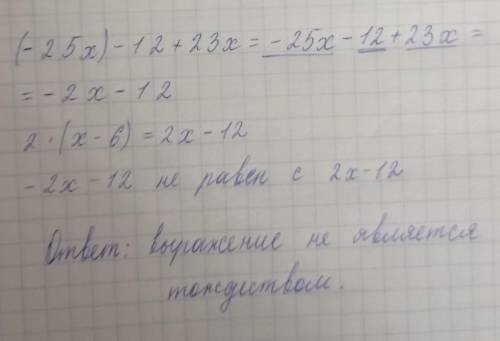 (-25x)-12+23x = -25x-12+23x =
= -2x-12
2·(x-6) = 2x-12
-2x-12 не равен с 2x-12
Ответ: выражение не является
тождеством.